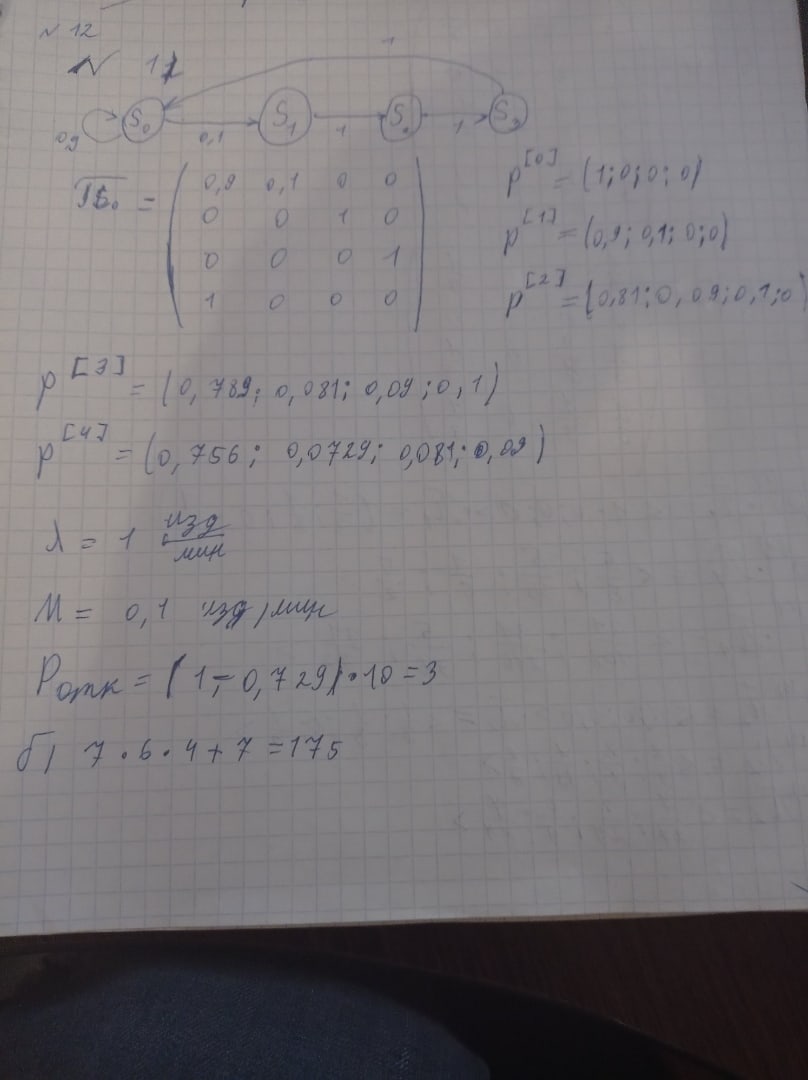 № 12
№ 11
1
0,9 S₀ 0,1 S₁ 1 S₂ 1 S₃
= ( 0,9 0,1 0 0
0 0 1 0
0 0 0 1
1 0 0 0 )
p^[0] = (1; 0; 0; 0)
p^[1] = (0,9; 0,1; 0; 0)
p^[2] = (0,81; 0,09; 0,1; 0)
p^[3] = (0,789; 0,081; 0,09; 0,1)
p^[4] = (0,756; 0,0729; 0,081; 0,09)
λ = 1 изд/мин
M = 0,1 изд/мин
Pотк = (1 - 0,729) · 10 = 3
б) 7 · 6 · 4 + 7 = 175